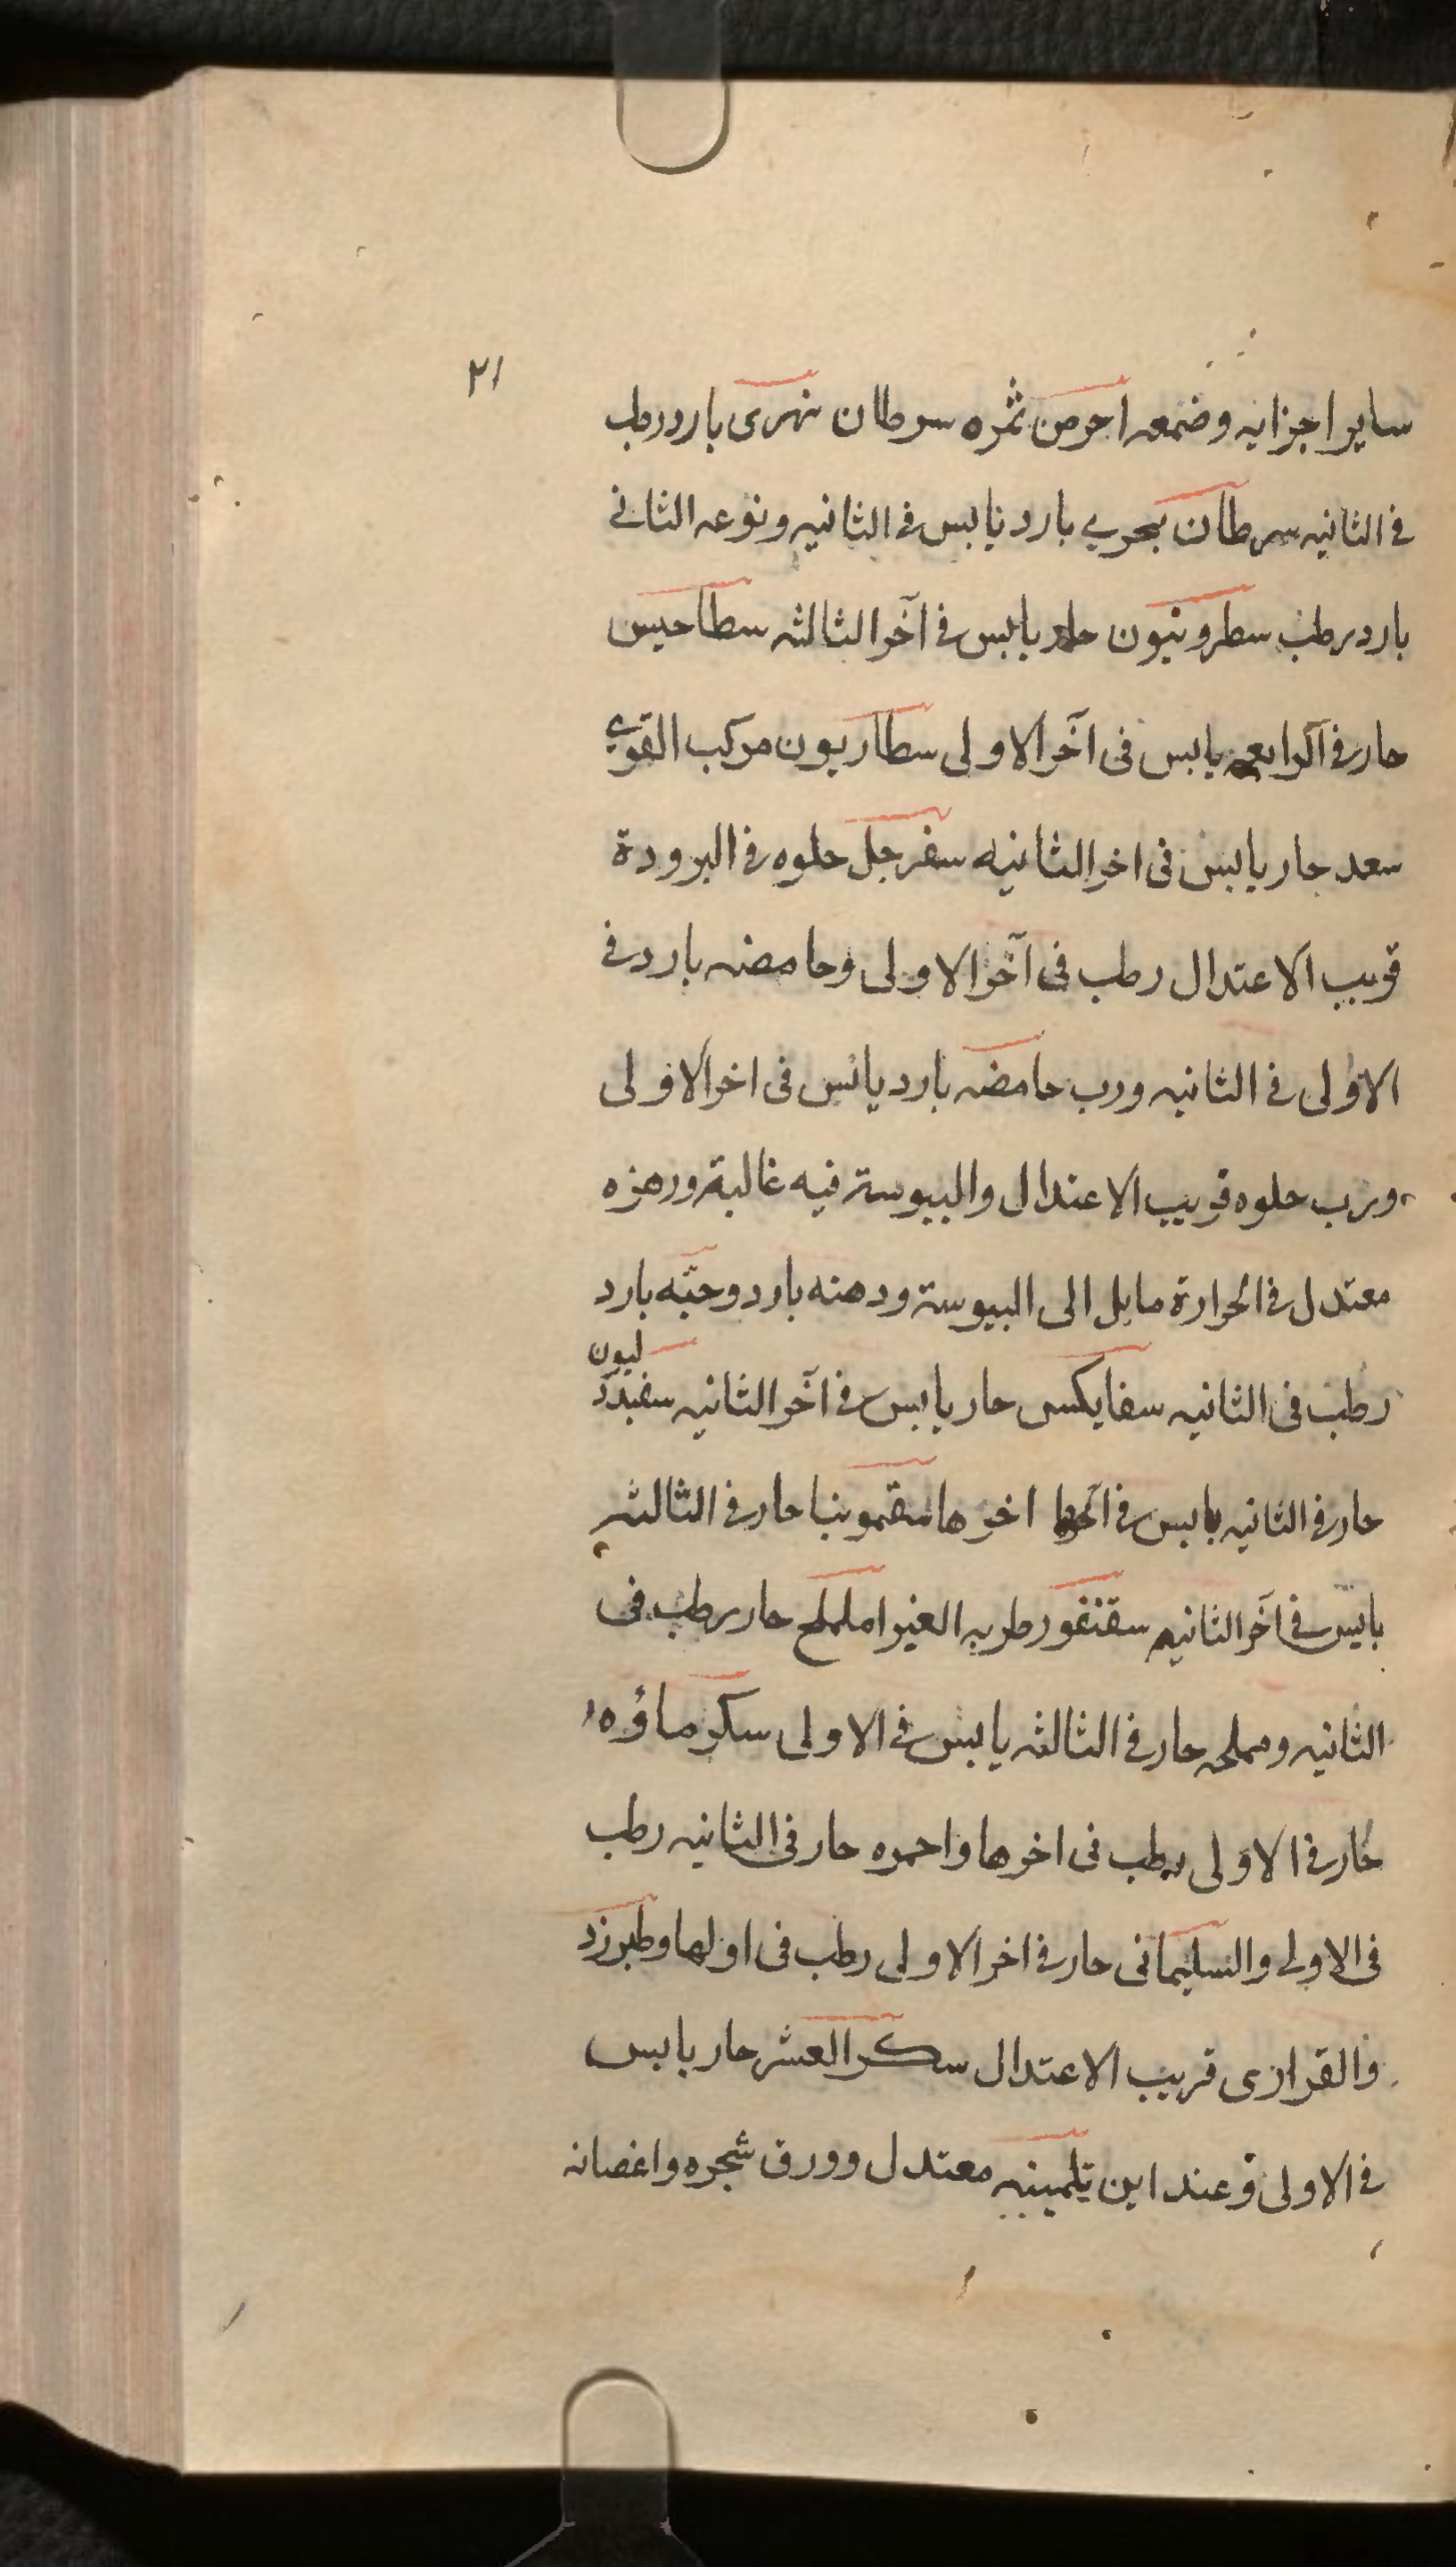 ٢١
سایر اجزایه وضمعه احرمن ثمره سرطان نهری بارد رطب
فی الثانیه سرطان بحری بارد یابس فی الثانیه ونوعه الثانی
بارد رطب سطرونیون حار یابس فی آخر الثالثه سطاحیس
حار فی الرابعه یابس فی آخر الاولی سطاریون مرکب القوی
سعد حار یابس فی اخر الثانیه سفرجل حلوه فی البرودة
قریب الاعتدال رطب فی آخر الاولی وحامضه بارد فی
الاولی فی الثانیه ورب حامضه بارد یابس فی اخر الاولی
ورب حلوه قریب الاعتدال والیبوسة فیه غالبة وزهره
معتدل فی الحرارة مایل الی الیبوسة ودهنه بارد وحبّه بارد
رطب فی الثانیه سفایکسی حار یابس فی آخر الثانیه سفیددلیون
حار فی الثانیه یابس فی اخرها سقمونیا حار فی الثالثه
یابس فی آخر الثانیه سقنقور طریه الغیر اململح حار رطب فی
الثانیه ومملحه حار فی الثالثه یابس فی الاولی سکر ماؤه
حار فی الاولی رطب فی اخرها واحمره حار فی الثانیه رطب
فی الاولی والسلیمانی حار فی اخر الاولی رطب فی اولها وطبرزد
والقرازی قریب الاعتدال سکر العشر حار یابس
فی الاولی وعند ابن تلمینیه معتدل وورق شجره واغصانه